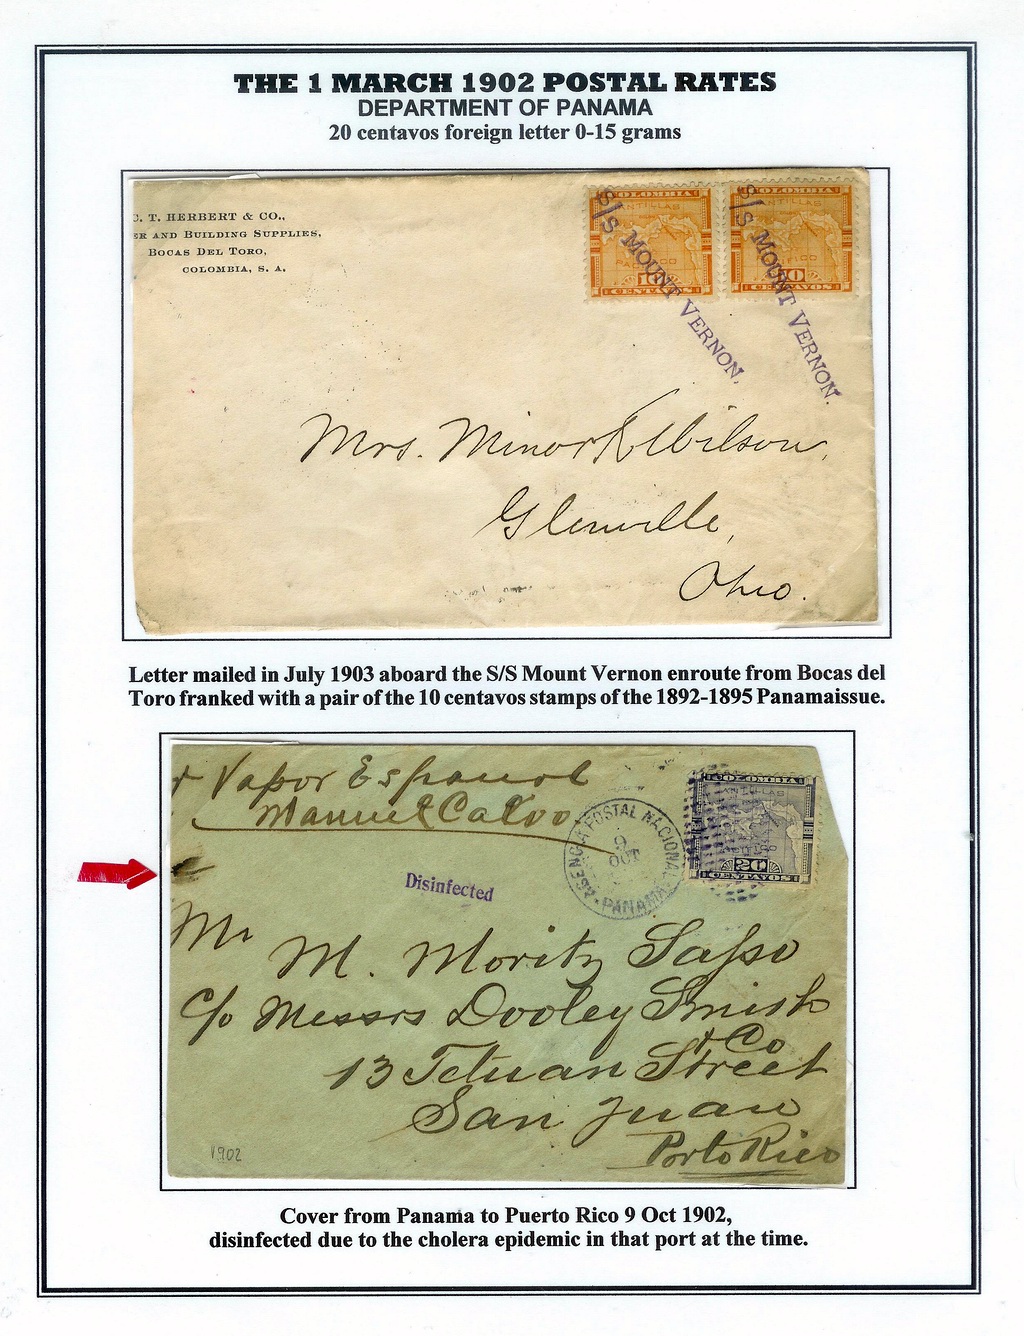 THE 1 MARCH 1902 POSTAL RATES
DEPARTMENT OF PANAMA
20 centavos foreign letter 0-15 grams
C. T. HERBERT & CO.,
ER AND BUILDING SUPPLIES,
BOCAS DEL TORO,
COLOMBIA, S. A.
COLOMBIA
ANTILLAS
PACIFICO
10
CENTAVOS
COLOMBIA
ANTILLAS
PACIFICO
10
CENTAVOS
S/S MOUNT VERNON.
S/S MOUNT VERNON.
Mrs. Minor K Wilson,
Glenville,
Ohio.
Letter mailed in July 1903 aboard the S/S Mount Vernon enroute from Bocas del
Toro franked with a pair of the 10 centavos stamps of the 1892-1895 Panamaissue.
r Vapor Español
Manuel Calvo
AGENCIA POSTAL NACIONAL
9
OCT
PANAMA
COLOMBIA
ANTILLAS
20
CENTAVOS
Disinfected
Mr M. Moritz Sasso
c/o Messrs Dooley Smith
& Co
13 Tetuan Street
San Juan
Porto Rico
1902
Cover from Panama to Puerto Rico 9 Oct 1902,
disinfected due to the cholera epidemic in that port at the time.